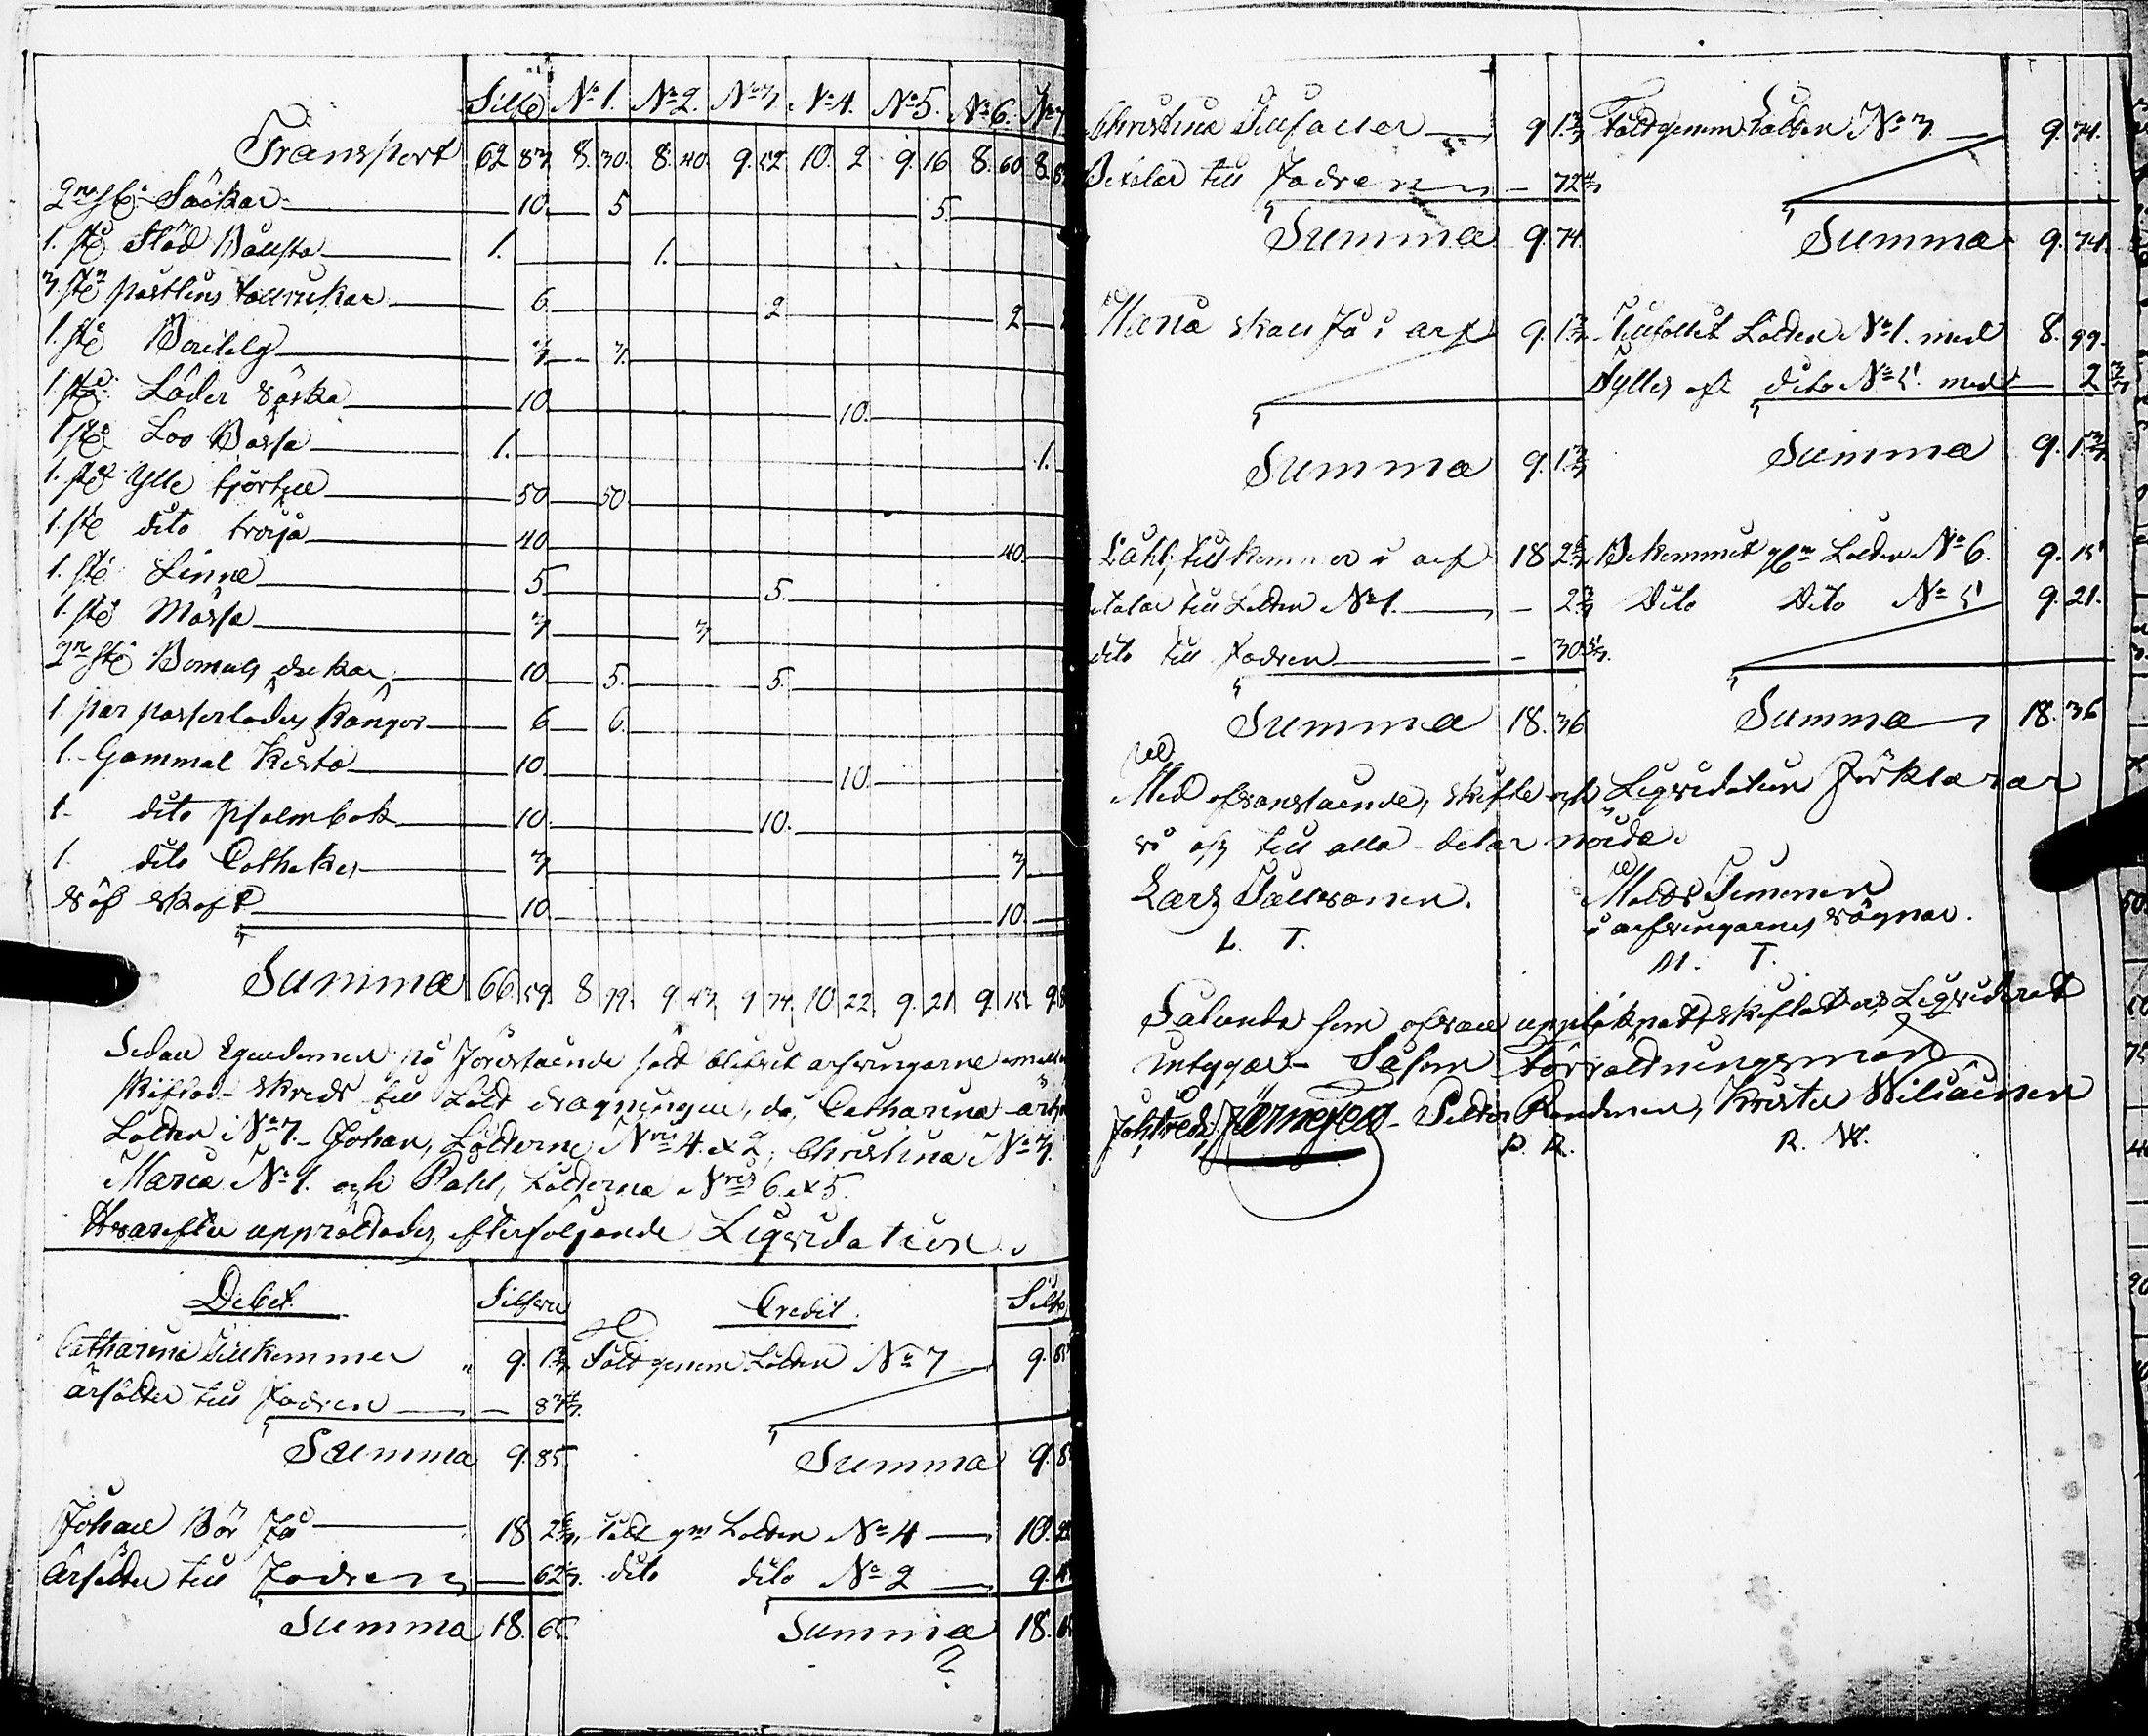 Silfe No 1. No 2. No 3. No 4. No 5. No 6. No 7
Transport 62 83 8. 30. 8. 40. 9. 52 10. 2 9. 16 8. 60 8.
2ne st. Säckar 10. 5 5.
1. st. Slöd 1. 1.
3 st. postlins tallrickar 6 2 2
1. st. 3 3.
1 st. Läder 10 10.
1 st. Loo 1. 1.
1. st. Ylle kjortel 50 50
1. st. dito tröija 40 40
1. st. Linne 5 5.
1. st. Mössa 3 3
2ne st. Bomuls dukar 10 5. 5.
1. par kängor 6 6.
1. Gammal Kista 10 10.
1. dito psalmbok 10. 10.
1. dito Cathekes 3 3
10. 10.
Summa 66. 59. 8 99. 9 43 9 74. 10. 22. 9. 21. 9. 15. 9.
Sedan Egendomen på förestående sätt blifvit arfvingarne
skiftad skreds till Lått dragningen, då Catharina
Lotten No 7. Johan, Lotterne Nris 4 & 2, Christina No 3.
Maria No 1. och Pahl, Lotterna Nris 6 & 5.
Hvarefter upprättades efterföljande Liqvidation.
Debet. Silfver Credit. Silfe
Catharina tillkommer 9. 1 3/7 Född genom Lotten No 7 9. 85
ärsätter till Fadren — 83 4/7.
Summa 9. 85 Summa 9.
Johan Bör Få 18 2 6/7 gm Lotten No 4 10. 22
Ersätter till Fadren 62 1/7. dito dito No 2 9.
Summa 18. 65. Summa 18.
Christina Tillfaller 9 1 3/7 Född genom Lotten No 3 9. 74.
Betalar till Fadren — 72 4/7
Summa 9. 74. Summa 9. 74.
Maria skall Få i arf 9. 1 3/7 Tillfallit Lotten No 1. med 8. 99.
Fylles af dito No 5. med 2 3/7
Summa 9. 1 3/7 Summa 9. 1 3/7
Pahl, tillkommer i arf 18 2 6/7 Bekommit gm Lotten No 6. 9. 15
Betalar till Lotten No 1. — 2 3/7 Dito Dito No 5 9. 21.
dito till Fadren — 30 5/7.
Summa 18. 36 Summa 18. 36
Med ofvanstående, skifte och Liqvidation Förklarar
vi oss till alla delar nöida.
Lars
L. T. i arfvingarnes vägnar.
M. T.
Sålunda som ofvan uppteknat, skiftat och Liqviderat
intygar – Såsom Förrättningsmän
Petter Krister
P. R. K. W.